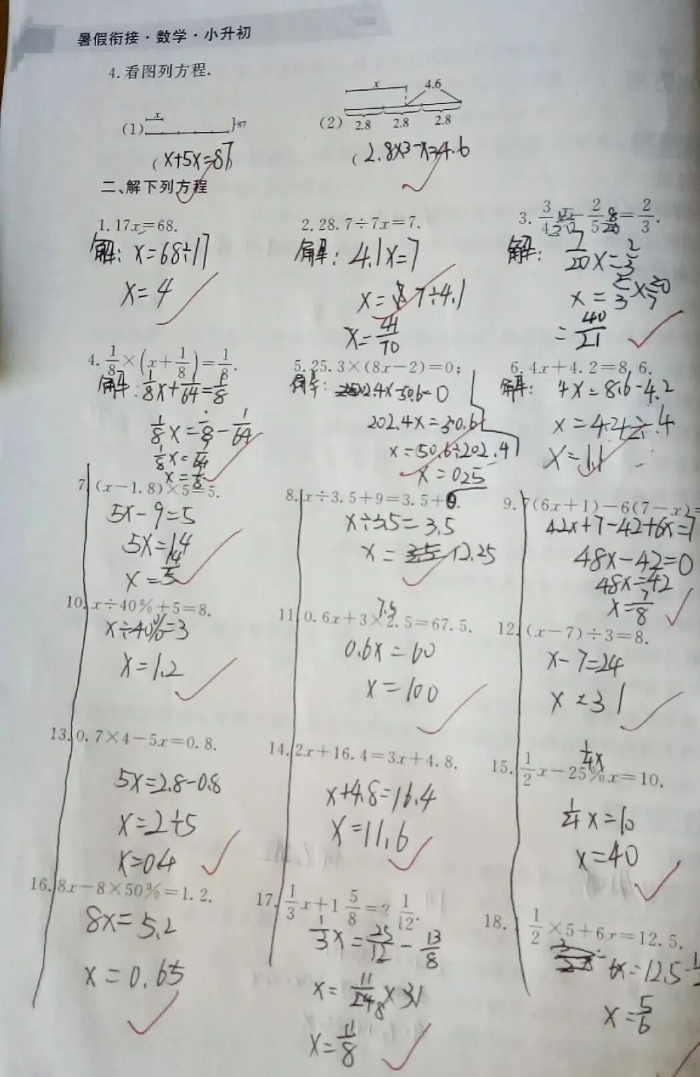 暑假衔接·数学·小升初
4.看图列方程.
(1) x }87
(2) x 4.6
2.8 2.8 2.8
(x+5x=87
(2.8×3-x=4.6
二、解下列方程
1.17x=68.
解: x=68÷17
x=4
2.28.7÷7x=7.
解: 4.1x=7
x=7÷4.1
3. 3/4 - 2/5 = 2/3.
解: 7/20 x=2/3
x=2/3×20/7
=40/21
4. 1/8×(x+1/8)=1/8.
解: 1/8x+1/64=1/8
1/8x=1/8-1/64
5.25.3×(8x-2)=0;
解: 202.4x-50.6=0
202.4x=50.6
x=50.6÷202.4
x=025
6.4x+4.2=8.6.
解: 4x=8.6-4.2
x=4.4÷4
x=1.1
7.(x-1.8)×5=5.
5x-9=5
5x=14
x=14/5
8.x÷3.5+9=3.5+9.
x÷3.5=3.5
x=12.25
9.7(6x+1)-6(7-x)=
42x+7-42+6x=7
48x-42=0
48x=42
x=7/8
10.x÷40%+5=8.
x÷40%=3
x=1.2
11.0.6x+3×2.5=67.5.
7.5
0.6x=60
x=100
12.(x-7)÷3=8.
x-7=24
x=31
13.0.7×4-5x=0.8.
5x=2.8-0.8
x=2÷5
x=04
14.2x+16.4=3x+4.8.
x+4.8=16.4
x=11.6
15. 1/2x-25%x=10.
1/4x
1/4x=10
x=40
16.8x-8×50%=1.2.
8x=5.2
x=0.65
17. 1/3x+1 5/8=2 1/12.
1/3x=25/12-13/8
x=11/24×3
x=11/8
18. 1/2×5+6x=12.5.
6x=12.5-
x=5/6